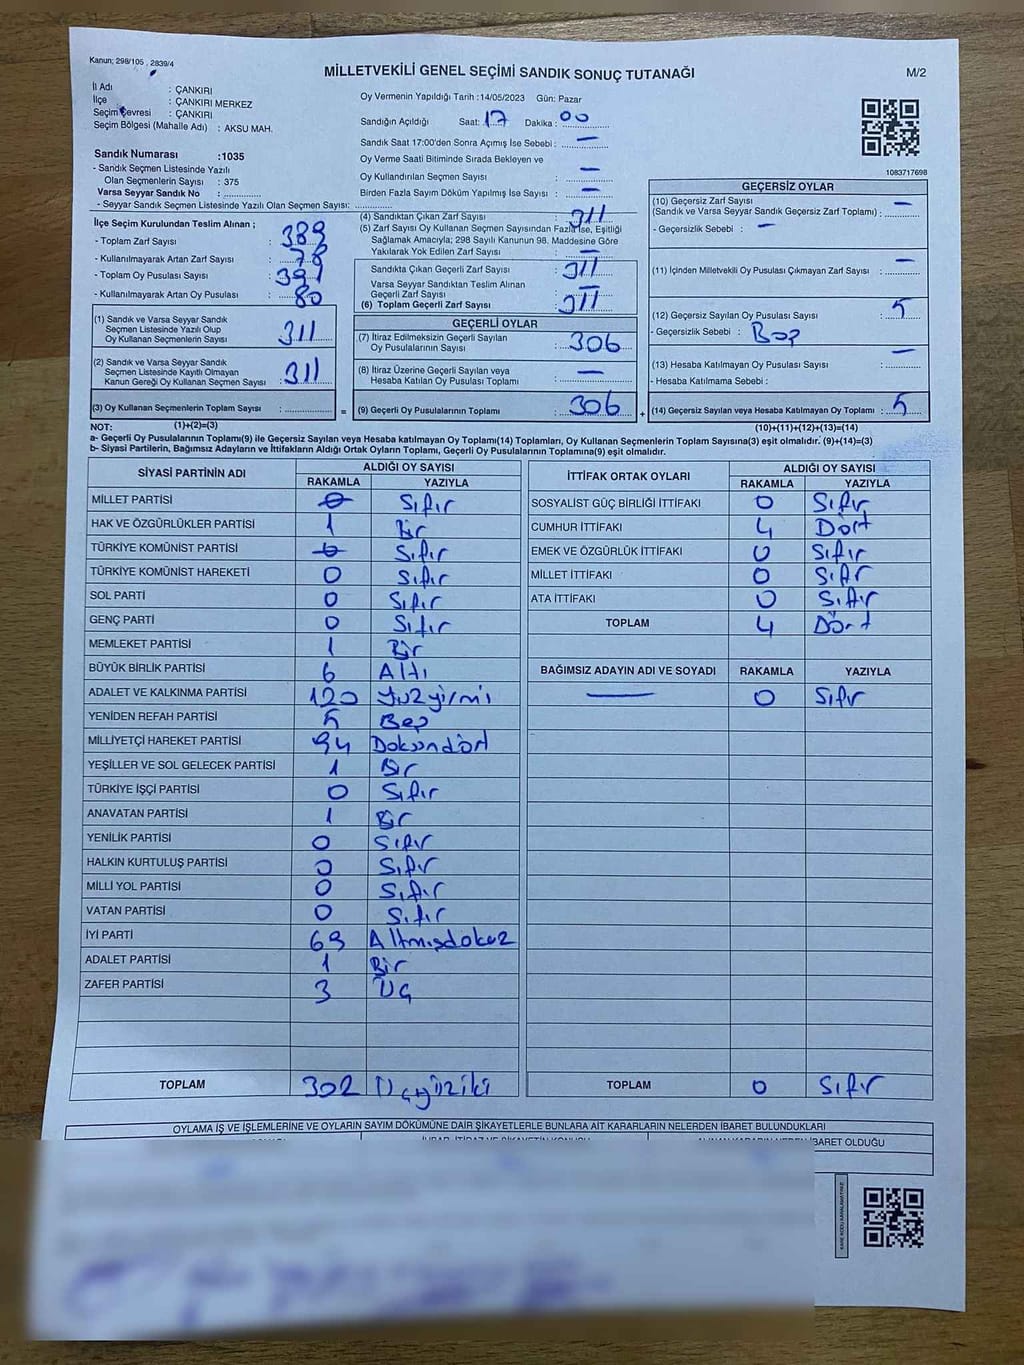 Kanun; 298/105 , 2839/4
MİLLETVEKİLİ GENEL SEÇİMİ SANDIK SONUÇ TUTANAĞI
M/2
İl Adı : ÇANKIRI
İlçe : ÇANKIRI MERKEZ
Seçim Çevresi : ÇANKIRI
Seçim Bölgesi (Mahalle Adı) : AKSU MAH.
Sandık Numarası :1035
- Sandık Seçmen Listesinde Yazılı
Olan Seçmenlerin Sayısı : 375
Varsa Seyyar Sandık No : ............
- Seyyar Sandık Seçmen Listesinde Yazılı Olan Seçmen Sayısı: ............
İlçe Seçim Kurulundan Teslim Alınan ;
- Toplam Zarf Sayısı : 389
- Kullanılmayarak Artan Zarf Sayısı : 78
- Toplam Oy Pusulası Sayısı : 391
- Kullanılmayarak Artan Oy Pusulası : 80
(1) Sandık ve Varsa Seyyar Sandık
Seçmen Listesinde Yazılı Olup
Oy Kullanan Seçmenlerin Sayısı : 311
(2) Sandık ve Varsa Seyyar Sandık
Seçmen Listesinde Kayıtlı Olmayan
Kanun Gereği Oy Kullanan Seçmen Sayısı : 311
(3) Oy Kullanan Seçmenlerin Toplam Sayısı : ............
(1)+(2)=(3)
Oy Vermenin Yapıldığı Tarih :14/05/2023 Gün: Pazar
Sandığın Açıldığı Saat: 17 Dakika : 00
Sandık Saat 17:00'den Sonra Açımış İse Sebebi : —
Oy Verme Saati Bitiminde Sırada Bekleyen ve
Oy Kullandırılan Seçmen Sayısı : —
Birden Fazla Sayım Döküm Yapılmış İse Sayısı : —
(4) Sandıktan Çıkan Zarf Sayısı : 311
(5) Zarf Sayısı Oy Kullanan Seçmen Sayısından Fazla İse, Eşitliği
Sağlamak Amacıyla; 298 Sayılı Kanunun 98. Maddesine Göre
Yakılarak Yok Edilen Zarf Sayısı : —
Sandıkta Çıkan Geçerli Zarf Sayısı : 311
Varsa Seyyar Sandıktan Teslim Alınan
Geçerli Zarf Sayısı :
(6) Toplam Geçerli Zarf Sayısı : 311
GEÇERLİ OYLAR
(7) İtiraz Edilmeksizin Geçerli Sayılan
Oy Pusulalarının Sayısı : 306
(8) İtiraz Üzerine Geçerli Sayılan veya
Hesaba Katılan Oy Pusulası Toplamı : —
= (9) Geçerli Oy Pusulalarının Toplamı : 306 +
1083717698
GEÇERSİZ OYLAR
(10) Geçersiz Zarf Sayısı —
(Sandık ve Varsa Seyyar Sandık Geçersiz Zarf Toplamı) : ............
- Geçersizlik Sebebi : —
(11) İçinden Milletvekili Oy Pusulası Çıkmayan Zarf Sayısı : —
(12) Geçersiz Sayılan Oy Pusulası Sayısı : 5
- Geçersizlik Sebebi : Boş
(13) Hesaba Katılmayan Oy Pusulası Sayısı : —
- Hesaba Katılmama Sebebi :
(14) Geçersiz Sayılan veya Hesaba Katılmayan Oy Toplamı : 5
(10)+(11)+(12)+(13)=(14)
NOT:
a- Geçerli Oy Pusulalarının Toplamı(9) ile Geçersiz Sayılan veya Hesaba katılmayan Oy Toplamı(14) Toplamları, Oy Kullanan Seçmenlerin Toplam Sayısına(3) eşit olmalıdır. (9)+(14)=(3)
b- Siyasi Partilerin, Bağımsız Adayların ve İttifakların Aldığı Ortak Oyların Toplamı, Geçerli Oy Pusulalarının Toplamına(9) eşit olmalıdır.
SİYASİ PARTİNİN ADI ALDIĞI OY SAYISI
RAKAMLA YAZIYLA
MİLLET PARTİSİ 0 Sıfır
HAK VE ÖZGÜRLÜKLER PARTİSİ 1 Bir
TÜRKİYE KOMÜNİST PARTİSİ 0 Sıfır
TÜRKİYE KOMÜNİST HAREKETİ 0 Sıfır
SOL PARTİ 0 Sıfır
GENÇ PARTİ 0 Sıfır
MEMLEKET PARTİSİ 1 Bir
BÜYÜK BİRLİK PARTİSİ 6 Altı
ADALET VE KALKINMA PARTİSİ 120 Yüzyirmi
YENİDEN REFAH PARTİSİ 5 Beş
MİLLİYETÇİ HAREKET PARTİSİ 94 Doksandört
YEŞİLLER VE SOL GELECEK PARTİSİ 1 Bir
TÜRKİYE İŞÇİ PARTİSİ 0 Sıfır
ANAVATAN PARTİSİ 1 Bir
YENİLİK PARTİSİ 0 Sıfır
HALKIN KURTULUŞ PARTİSİ 0 Sıfır
MİLLİ YOL PARTİSİ 0 Sıfır
VATAN PARTİSİ 0 Sıfır
İYİ PARTİ 69 Altmışdokuz
ADALET PARTİSİ 1 Bir
ZAFER PARTİSİ 3 Üç
TOPLAM 302 Üçyüziki
İTTİFAK ORTAK OYLARI ALDIĞI OY SAYISI
RAKAMLA YAZIYLA
SOSYALİST GÜÇ BİRLİĞİ İTTİFAKI 0 Sıfır
CUMHUR İTTİFAKI 4 Dört
EMEK VE ÖZGÜRLÜK İTTİFAKI 0 Sıfır
MİLLET İTTİFAKI 0 Sıfır
ATA İTTİFAKI 0 Sıfır
TOPLAM 4 Dört
BAĞIMSIZ ADAYIN ADI VE SOYADI RAKAMLA YAZIYLA
— 0 Sıfır
TOPLAM 0 Sıfır
OYLAMA İŞ VE İŞLEMLERİNE VE OYLARIN SAYIM DÖKÜMÜNE DAİR ŞİKAYETLERLE BUNLARA AİT KARARLARIN NELERDEN İBARET BULUNDUKLARI
İBARET OLDUĞU